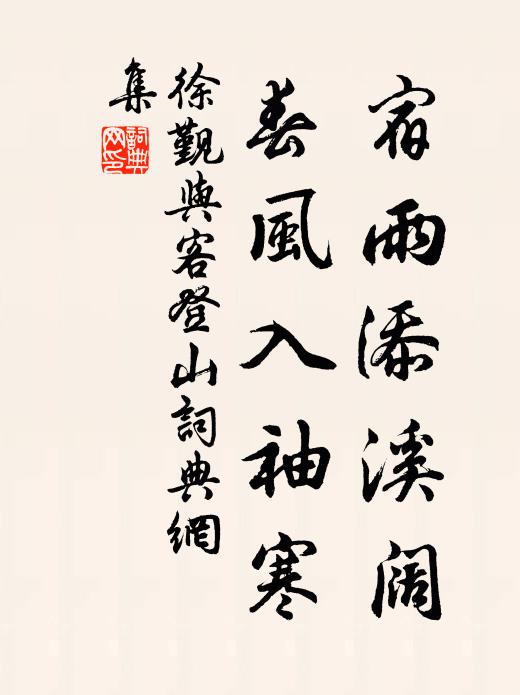 宿雨添溪阔
春風入袖寒
徐觀與客登山詞典網
集
詞典
网印